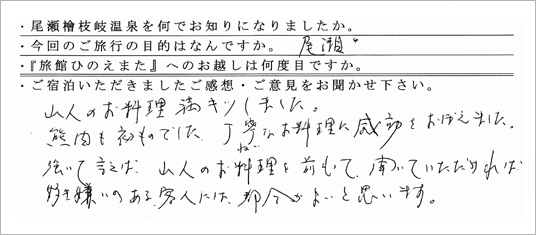 ・尾瀬檜枝岐温泉を何でお知りになりましたか。
・今回のご旅行の目的はなんですか。 尾瀬
・『旅館ひのえまた』へのお越しは何度目ですか。
・ご宿泊いただきましたご感想・ご意見をお聞かせ下さい。
山人のお料理 満キツしました。
熊肉も初ものでした。丁寧なお料理に感動をおぼえました。
強いて言えば 山人のお料理を前もって、聞いていただければ
好き嫌いのある客人には、都合がよいと思います。